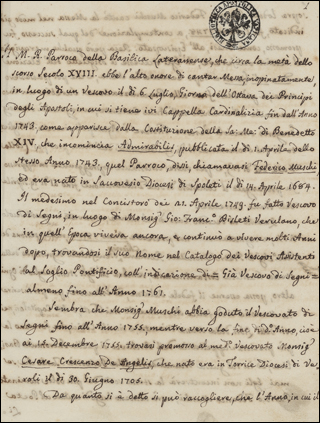 1
Il M. R. Parroco della Basilica Lateranense, che circa la metà dello
scorso Secolo XVIII ebbe l'alto onore di cantar Messa, inopinatamente,
in luogo di un Vescovo il dì 6 Luglio, Giorno dell'Ottava dei Principi
degli Apostoli, in cui si tiene ivi Cappella Cardinalizia fin dall'Anno
1743. come apparisce dalla Costituzione della Sa: Me: di Benedetto
XIV, che incomincia Admirabilis, pubblicata il dì 1. Aprile dello
stesso Anno 1743, quel Parroco, dissi, chiamavasi Federico Muschi
ed era nato in Diocesi di Spoleti il dì 14. Aprile 1684.
Il medesimo nel Concistoro dei 21. Aprile 1749. fu fatto Vescovo
di Segni, in luogo di Monsig. Gio: Franc. Bisleti Verulano, che
in quell'Epoca viveva ancora, e continuò a vivere molti Anni
dopo, trovandosi il suo Nome nel Catalogo dei Vescovi Assistenti
al Soglio Pontificio, coll'indicazione di = Già Vescovo di Segni =
almeno fino all'Anno 1761.
Sembra che Monsig. Muschi abbia goduto il Vescovato di
Segni fino all'Anno 1755. mentre verso la fine di d. Anno, cioè
ai 14. Decembre 1755. trovasi promosso al med. Vescovato Monsig.
Cesare Crescenzo De Angelis, che nato era in Torrice Diocesi di Ve-
roli il dì 30. Giugno 1705.
Da quanto si è detto si può raccogliere, che l'Anno, in cui il